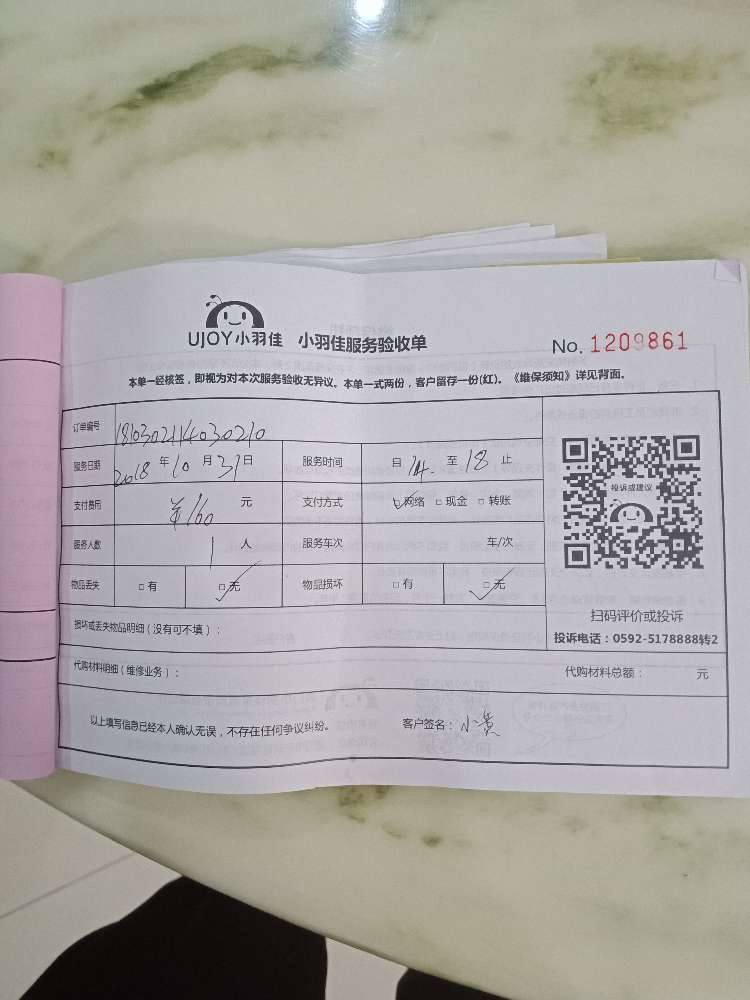 UJOY小羽佳 小羽佳服务验收单 No. 1209861
本单一经核签，即视为对本次服务验收无异议。本单一式两份，客户留存一份(红)。《维保须知》详见背面。
订单编号 181030211403020
服务日期 2018 年 10 月 31 日 服务时间 自 14 至 18 止
投诉或建议
支付费用 ¥160 元 支付方式 ☑ 网络 □ 现金 □ 转账
服务人数 1 人 服务车次 车/次
物品丢失 □ 有 ☑ 无 物品损坏 □ 有 ☑ 无
扫码评价或投诉
投诉电话：0592-5178888转2
损坏或丢失物品明细（没有可不填）：
代购材料明细（维修业务）： 代购材料总额： 元
以上填写信息已经本人确认无误，不存在任何争议纠纷。 客户签名：小黄